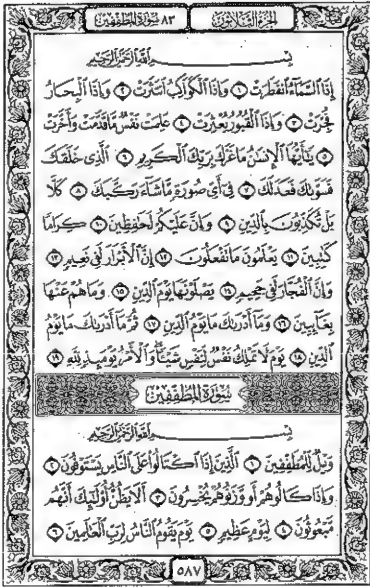 الجزء الثلاثون
٨٣ سورة المطففين
بسم الله الرحمن الرحيم
إِذَا ٱلسَّمَآءُ ٱنفَطَرَتْ ١ وَإِذَا ٱلْكَوَاكِبُ ٱنتَثَرَتْ ٢ وَإِذَا ٱلْبِحَارُ
فُجِّرَتْ ٣ وَإِذَا ٱلْقُبُورُ بُعْثِرَتْ ٤ عَلِمَتْ نَفْسٌ مَّا قَدَّمَتْ وَأَخَّرَتْ
٥ يَٰٓأَيُّهَا ٱلْإِنسَٰنُ مَا غَرَّكَ بِرَبِّكَ ٱلْكَرِيمِ ٦ ٱلَّذِى خَلَقَكَ
فَسَوَّىٰكَ فَعَدَلَكَ ٧ فِىٓ أَىِّ صُورَةٍ مَّا شَآءَ رَكَّبَكَ ٨ كَلَّا
بَلْ تُكَذِّبُونَ بِٱلدِّينِ ٩ وَإِنَّ عَلَيْكُمْ لَحَٰفِظِينَ ١٠ كِرَامًا
كَٰتِبِينَ ١١ يَعْلَمُونَ مَا تَفْعَلُونَ ١٢ إِنَّ ٱلْأَبْرَارَ لَفِى نَعِيمٍ ١٣
وَإِنَّ ٱلْفُجَّارَ لَفِى جَحِيمٍ ١٤ يَصْلَوْنَهَا يَوْمَ ٱلدِّينِ ١٥ وَمَا هُمْ عَنْهَا
بِغَآئِبِينَ ١٦ وَمَآ أَدْرَىٰكَ مَا يَوْمُ ٱلدِّينِ ١٧ ثُمَّ مَآ أَدْرَىٰكَ مَا يَوْمُ
ٱلدِّينِ ١٨ يَوْمَ لَا تَمْلِكُ نَفْسٌ لِّنَفْسٍ شَيْـًٔا وَٱلْأَمْرُ يَوْمَئِذٍ لِّلَّهِ ١٩
سورة المطففين
بسم الله الرحمن الرحيم
وَيْلٌ لِّلْمُطَفِّفِينَ ١ ٱلَّذِينَ إِذَا ٱكْتَالُوا۟ عَلَى ٱلنَّاسِ يَسْتَوْفُونَ ٢
وَإِذَا كَالُوهُمْ أَو وَّزَنُوهُمْ يُخْسِرُونَ ٣ أَلَا يَظُنُّ أُو۟لَٰٓئِكَ أَنَّهُم
مَّبْعُوثُونَ ٤ لِيَوْمٍ عَظِيمٍ ٥ يَوْمَ يَقُومُ ٱلنَّاسُ لِرَبِّ ٱلْعَٰلَمِينَ ٦
٥٨٧